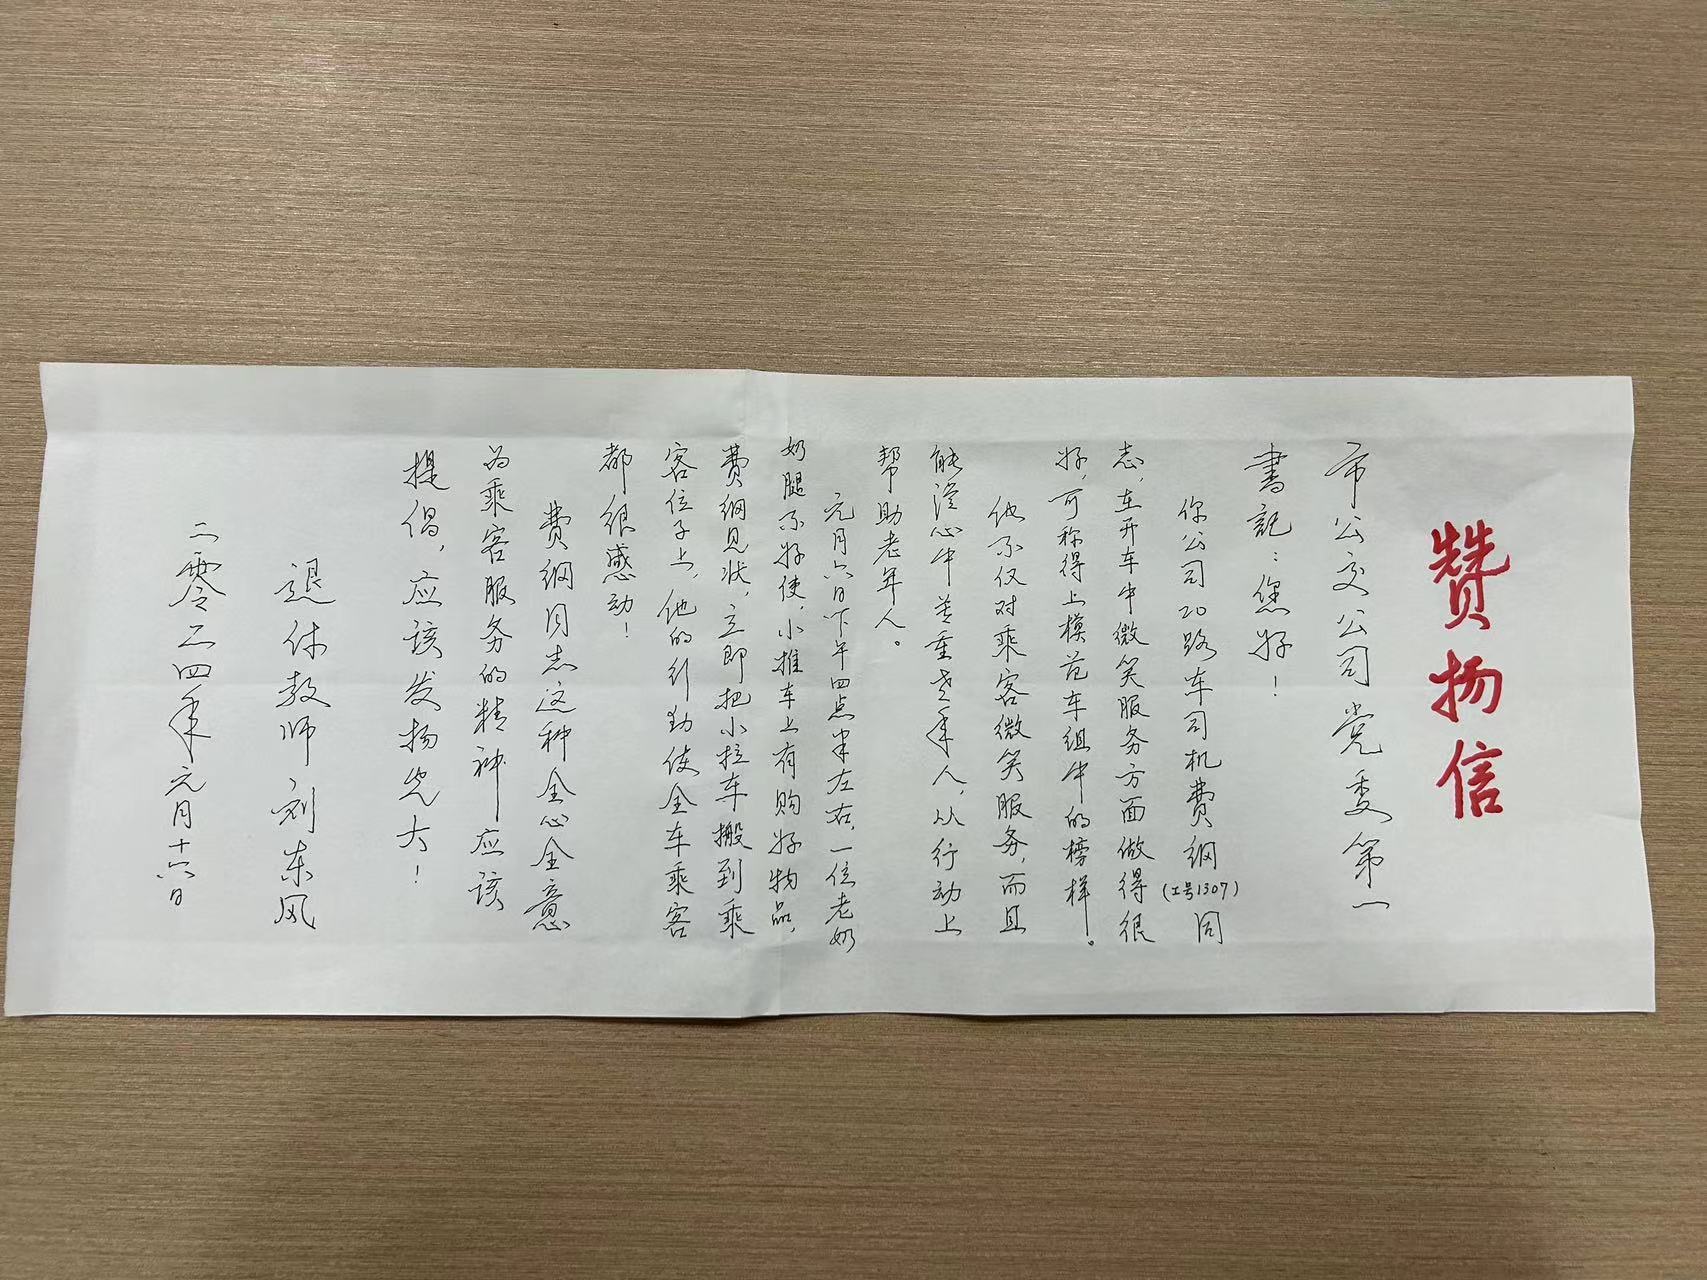 赞扬信
市公交公司党委第一
書記：您好！
你公司20路车司机费纲(工号1307)同
志，在开车中微笑服务方面做得很
好，可称得上模范车组中的榜样。
他不仅对乘客微笑服务，而且
能从心中尊重老年人，从行动上
帮助老年人。
元月六日下午四点半左右，一位老奶
奶腿不好使，小推车上有购好物品，
费纲见状，立即把小拉车搬到乘
客位子上，他的行动使全车乘客
都很感动！
费纲同志这种全心全意
为乘客服务的精神应该
提倡，应该发扬光大！
退休教师刘东风
二零二四年元月十六日